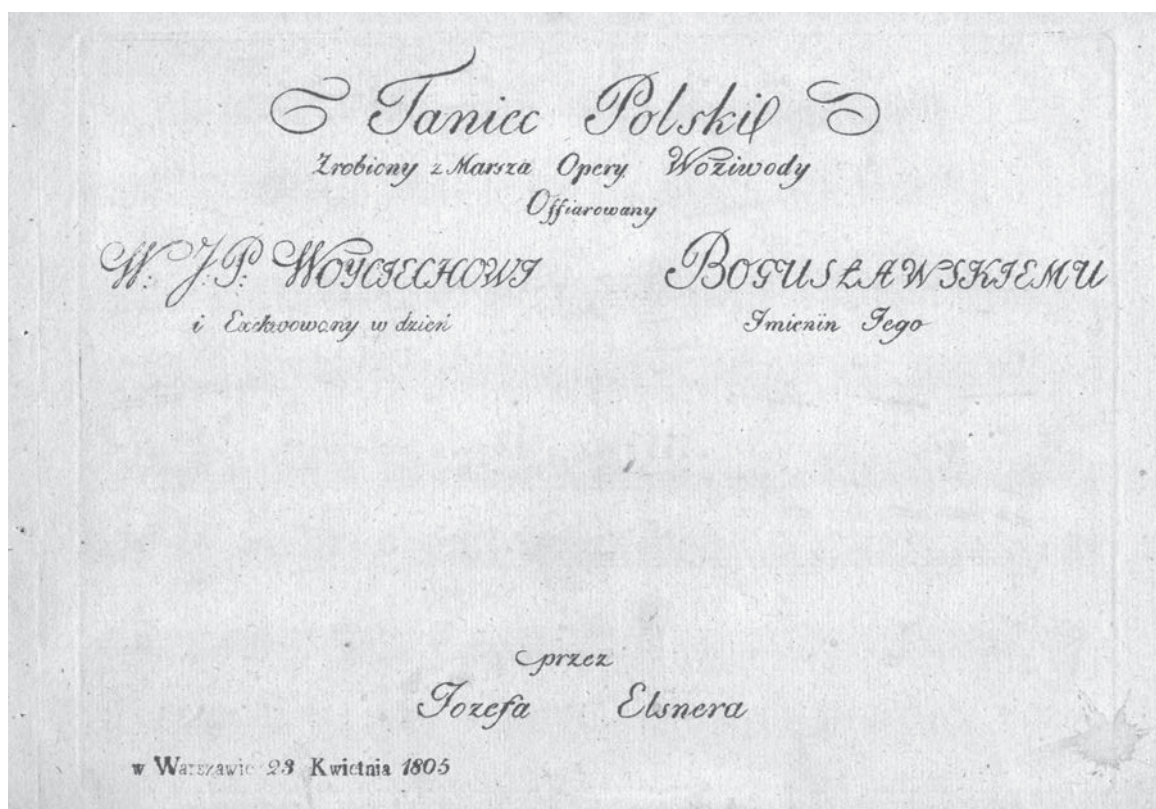 Taniec Polski
Zrobiony z Marsza Opery Woziwody
Offiarowany
W. J. P. WOYCIECHOWI BOGUSŁAWSKIEMU
i Exekwowany w dzień Imieniin Jego
przez
Jozefa Elsnera
w Warszawie 23 Kwietnia 1805